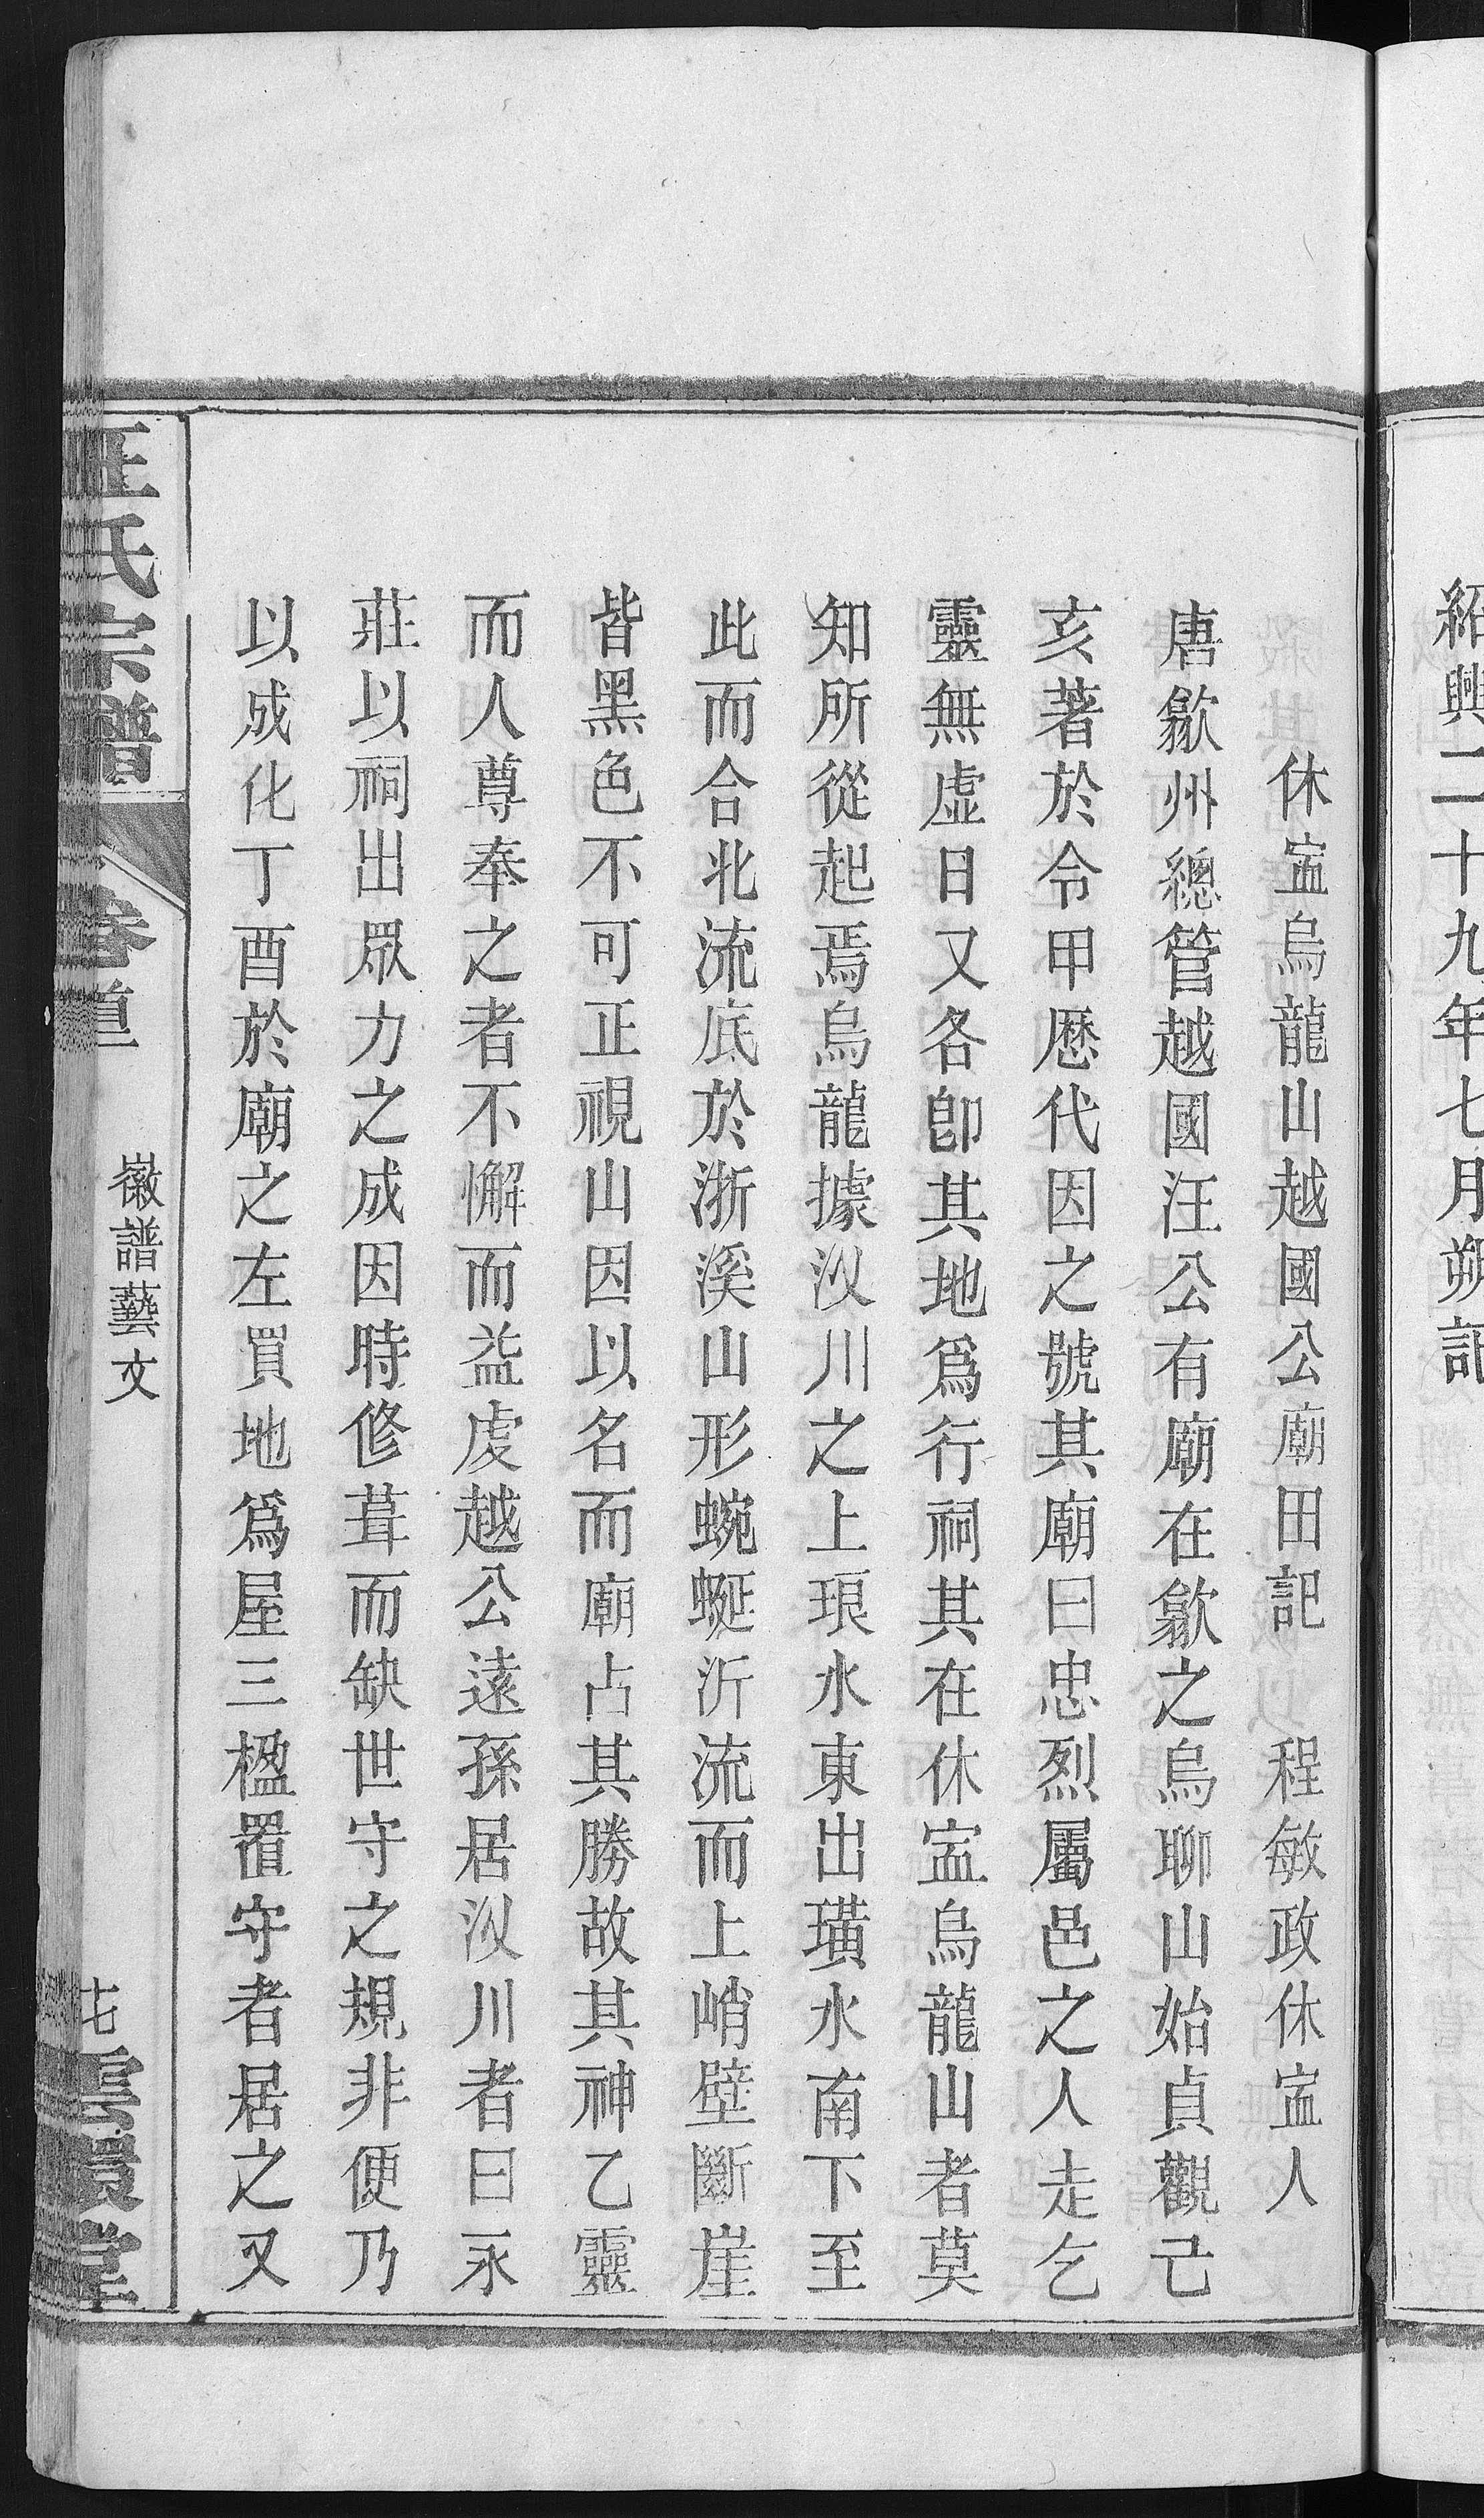 紹興二十九年七月朔記
休寍烏龍山越國公廟田記　程敏政休寍人
唐歙州總管越國汪公有廟在歙之烏聊山始貞觀己
亥著於令甲歷代因之號其廟曰忠烈屬邑之人走乞
靈無虛日又各卽其地爲行祠其在休寍烏龍山者莫
知所從起焉烏龍據汊川之上琅水東出璜水南下至
此而合北流底於浙溪山形蜿蜒沂流而上峭壁斷崖
皆黑色不可正視山因以名而廟占其勝故其神乙靈
而人尊奉之者不懈而益虔越公遠孫居汊川者曰永
莊以祠出眾力之成因時修葺而缺世守之規非便乃
以成化丁酉於廟之左買地爲屋三楹置守者居之又
汪氏宗譜
卷
徽譜藝文
七
雲環堂